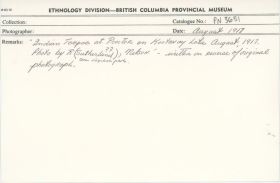 ETHNOLOGY DIVISION—BRITISH COLUMBIA PROVINCIAL MUSEUM
Collection:
Catalogue No.: PN 3651
Photographer:
Date: August 1917
Remarks: "Indian Teepee at Procter on Kootenay Lake August, 1917.
Photo by R. (Sutherland??), Nelson" - written on reverse of original
photograph.